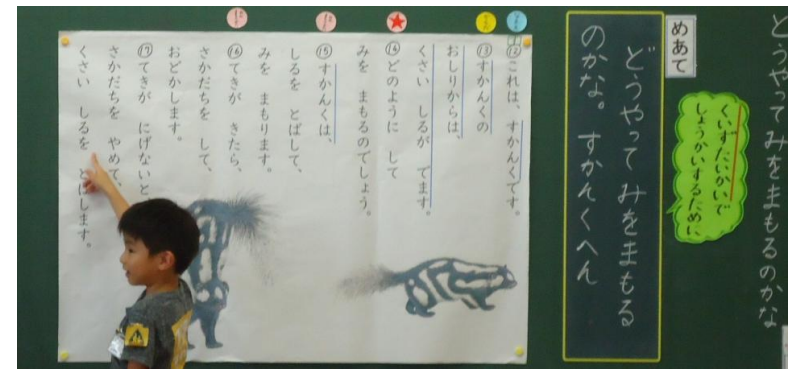 どうやってみをまもるのかな
めあて
くいずたいかいで
しょうかいするために
どうやってみをまもる
のかな。すかんくへん
⑫これは、すかんくです。
⑬すかんくの
おしりからは、
くさい しるが でます。
⑭どのように して
みを まもるのでしょう。
⑮すかんくは、
しるを とばして、
みを まもります。
⑯てきが きたら、
さかだちを して、
おどかします。
⑰てきが にげないと
さかだちを やめて、
くさい しるを とばします。